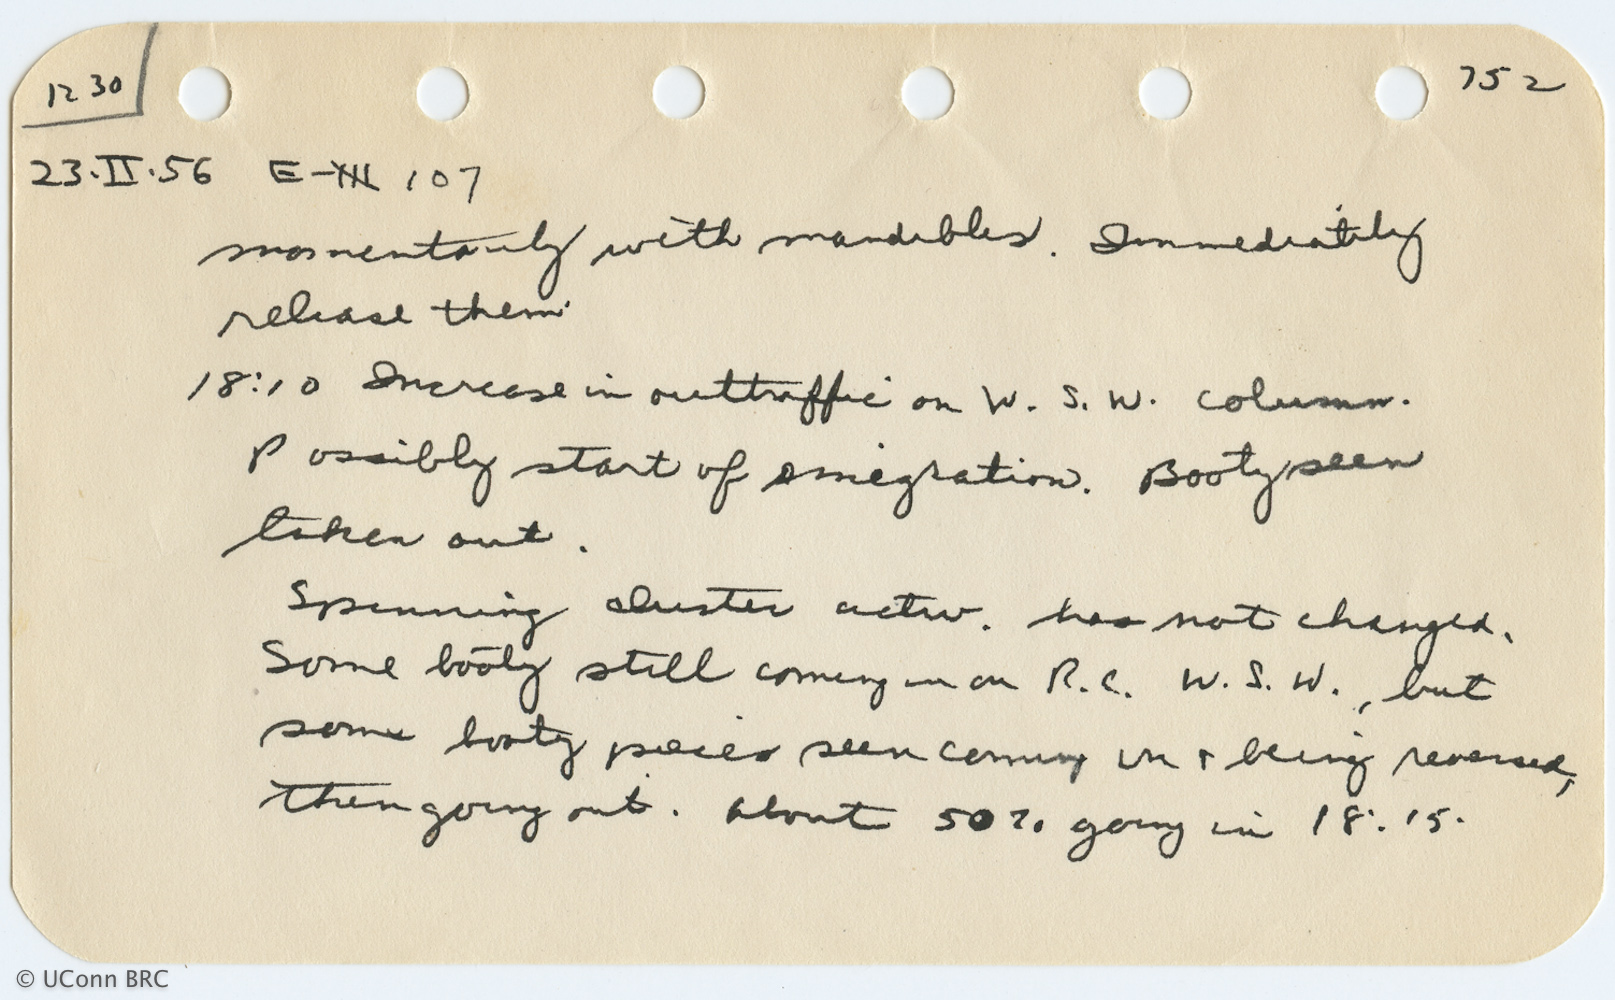 12 30
752
23.II.56 E-III 107
momentarily with mandibles. Immediately
release them.
18:10 Increase in outtraffic on W.S.W. column.
Possibly start of emigration. Booty seen
taken out.
Spinning cluster activ. has not changed.
Some booty still coming in on R.C. W.S.W., but
some booty pieces seen coming in + being reversed,
then going out. About 50% going in 18:15.
© UConn BRC